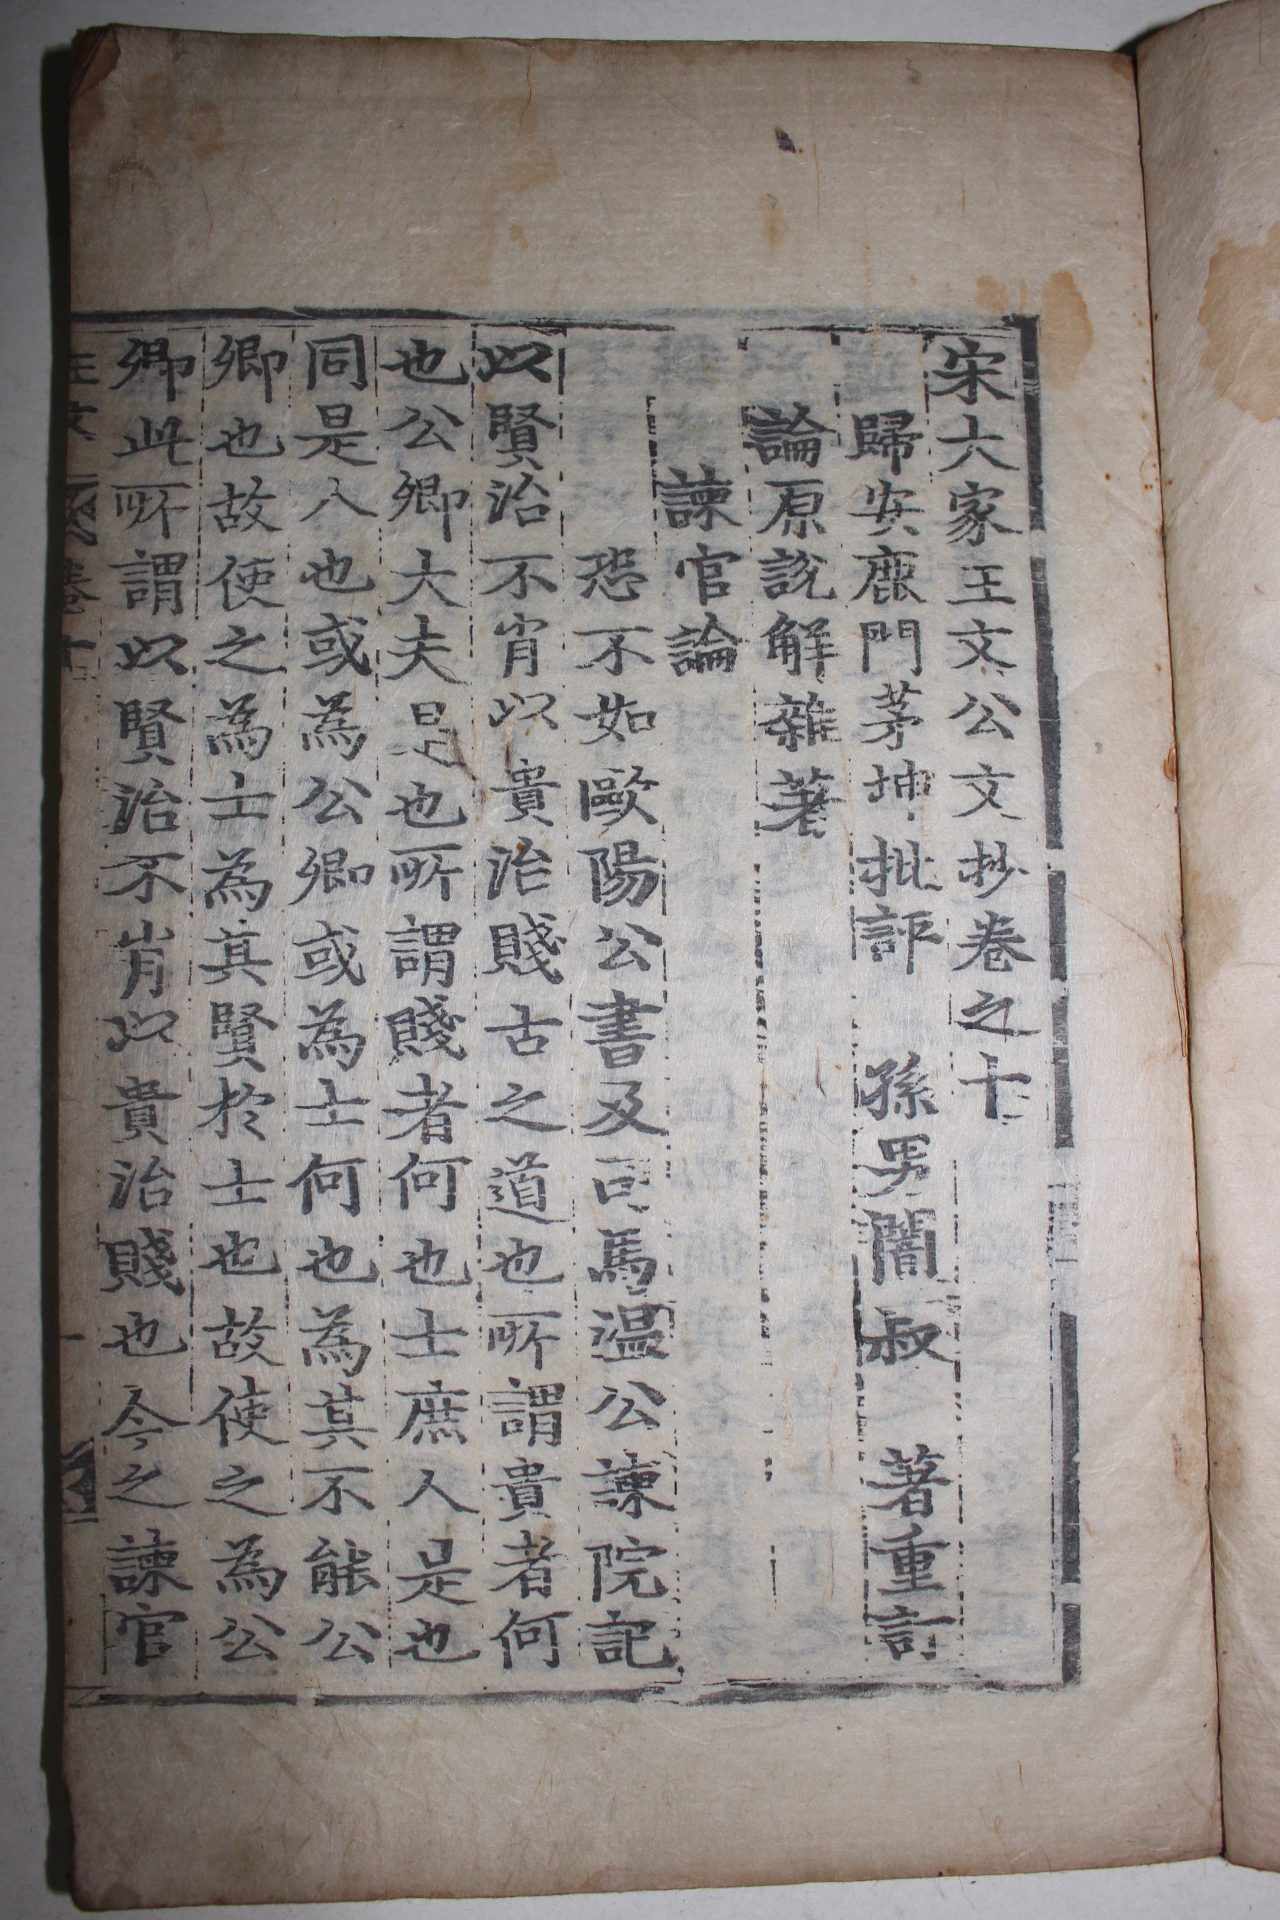 宋大家王文公文抄卷之十
歸安鹿門茅坤批評 孫男闇叔 著重訂
論原說解雜著
諫官論
恐不如歐陽公書及司馬溫公諫院記
以賢治不肖以貴治賤古之道也所謂貴者何
也公卿大夫是也所謂賤者何也士庶人是也
同是人也或為公卿或為士何也為其不能公
卿也故使之為士為其賢於士也故使之為公
卿此所謂以賢治不肖以貴治賤也今之諫官
卷十